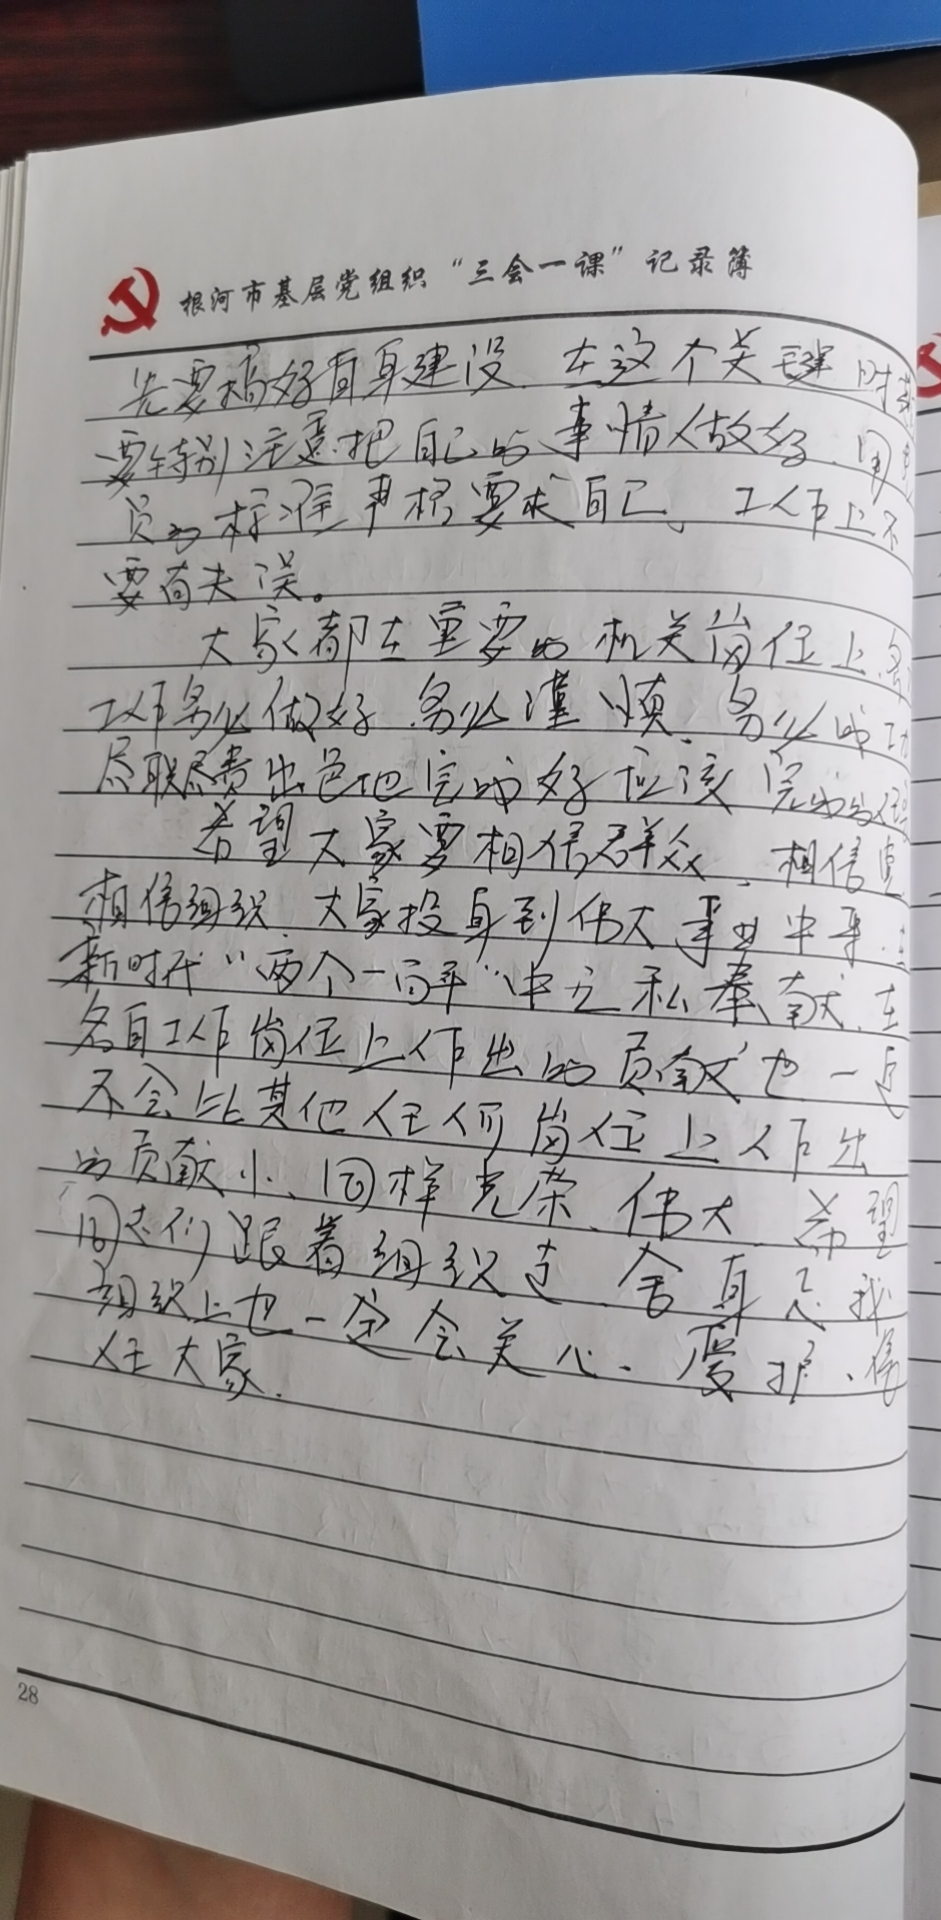 根河市基层党组织“三会一课”记录簿
先要搞好自身建设、在这个关键时刻
要特别注意把自己的事情做好、用党
员的标准严格要求自己、工作上不
要有失误。
大家都在重要的机关岗位上、
工作务必做好、务必谨慎、务必成功
尽职尽责出色地完成好应该完成的任务
希望大家要相信群众、相信党
相信组织、大家投身到伟大事业中来、在
新时代“两个一百年”中无私奉献、在
各自工作岗位上作出的贡献也一定
不会比其他任何岗位上作出
的贡献小、同样光荣、伟大、希望
同志们跟着组织走、舍身忘我
组织上也一定会关心、爱护、信
任大家.
28